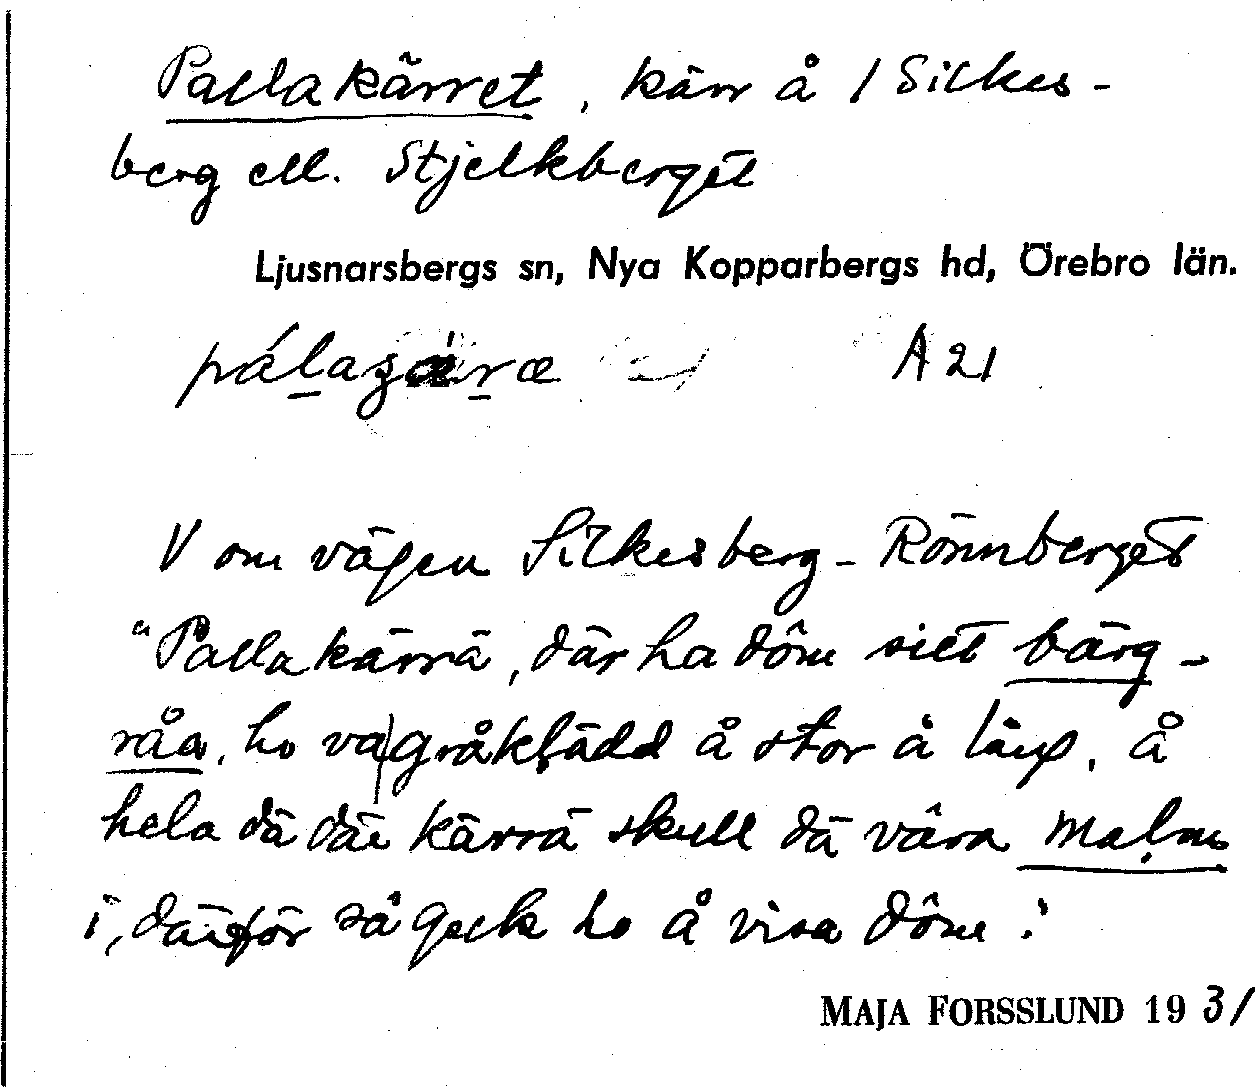 Pallakärret, kärr å / Silkes-
berg ell. Stjelkberget
Ljusnarsbergs sn, Nya Kopparbergs hd, Örebro län.
A 21
V om vägen Silkesberg - Rönnberget
"Pallakärrä, där ha döm sitt bärg-
råa, ho va gråklädd å stor å lång, å
hela dä där kärrä skull dä våra malm
i, därför så geck ho å visa döm."
MAJA FORSSLUND 1931